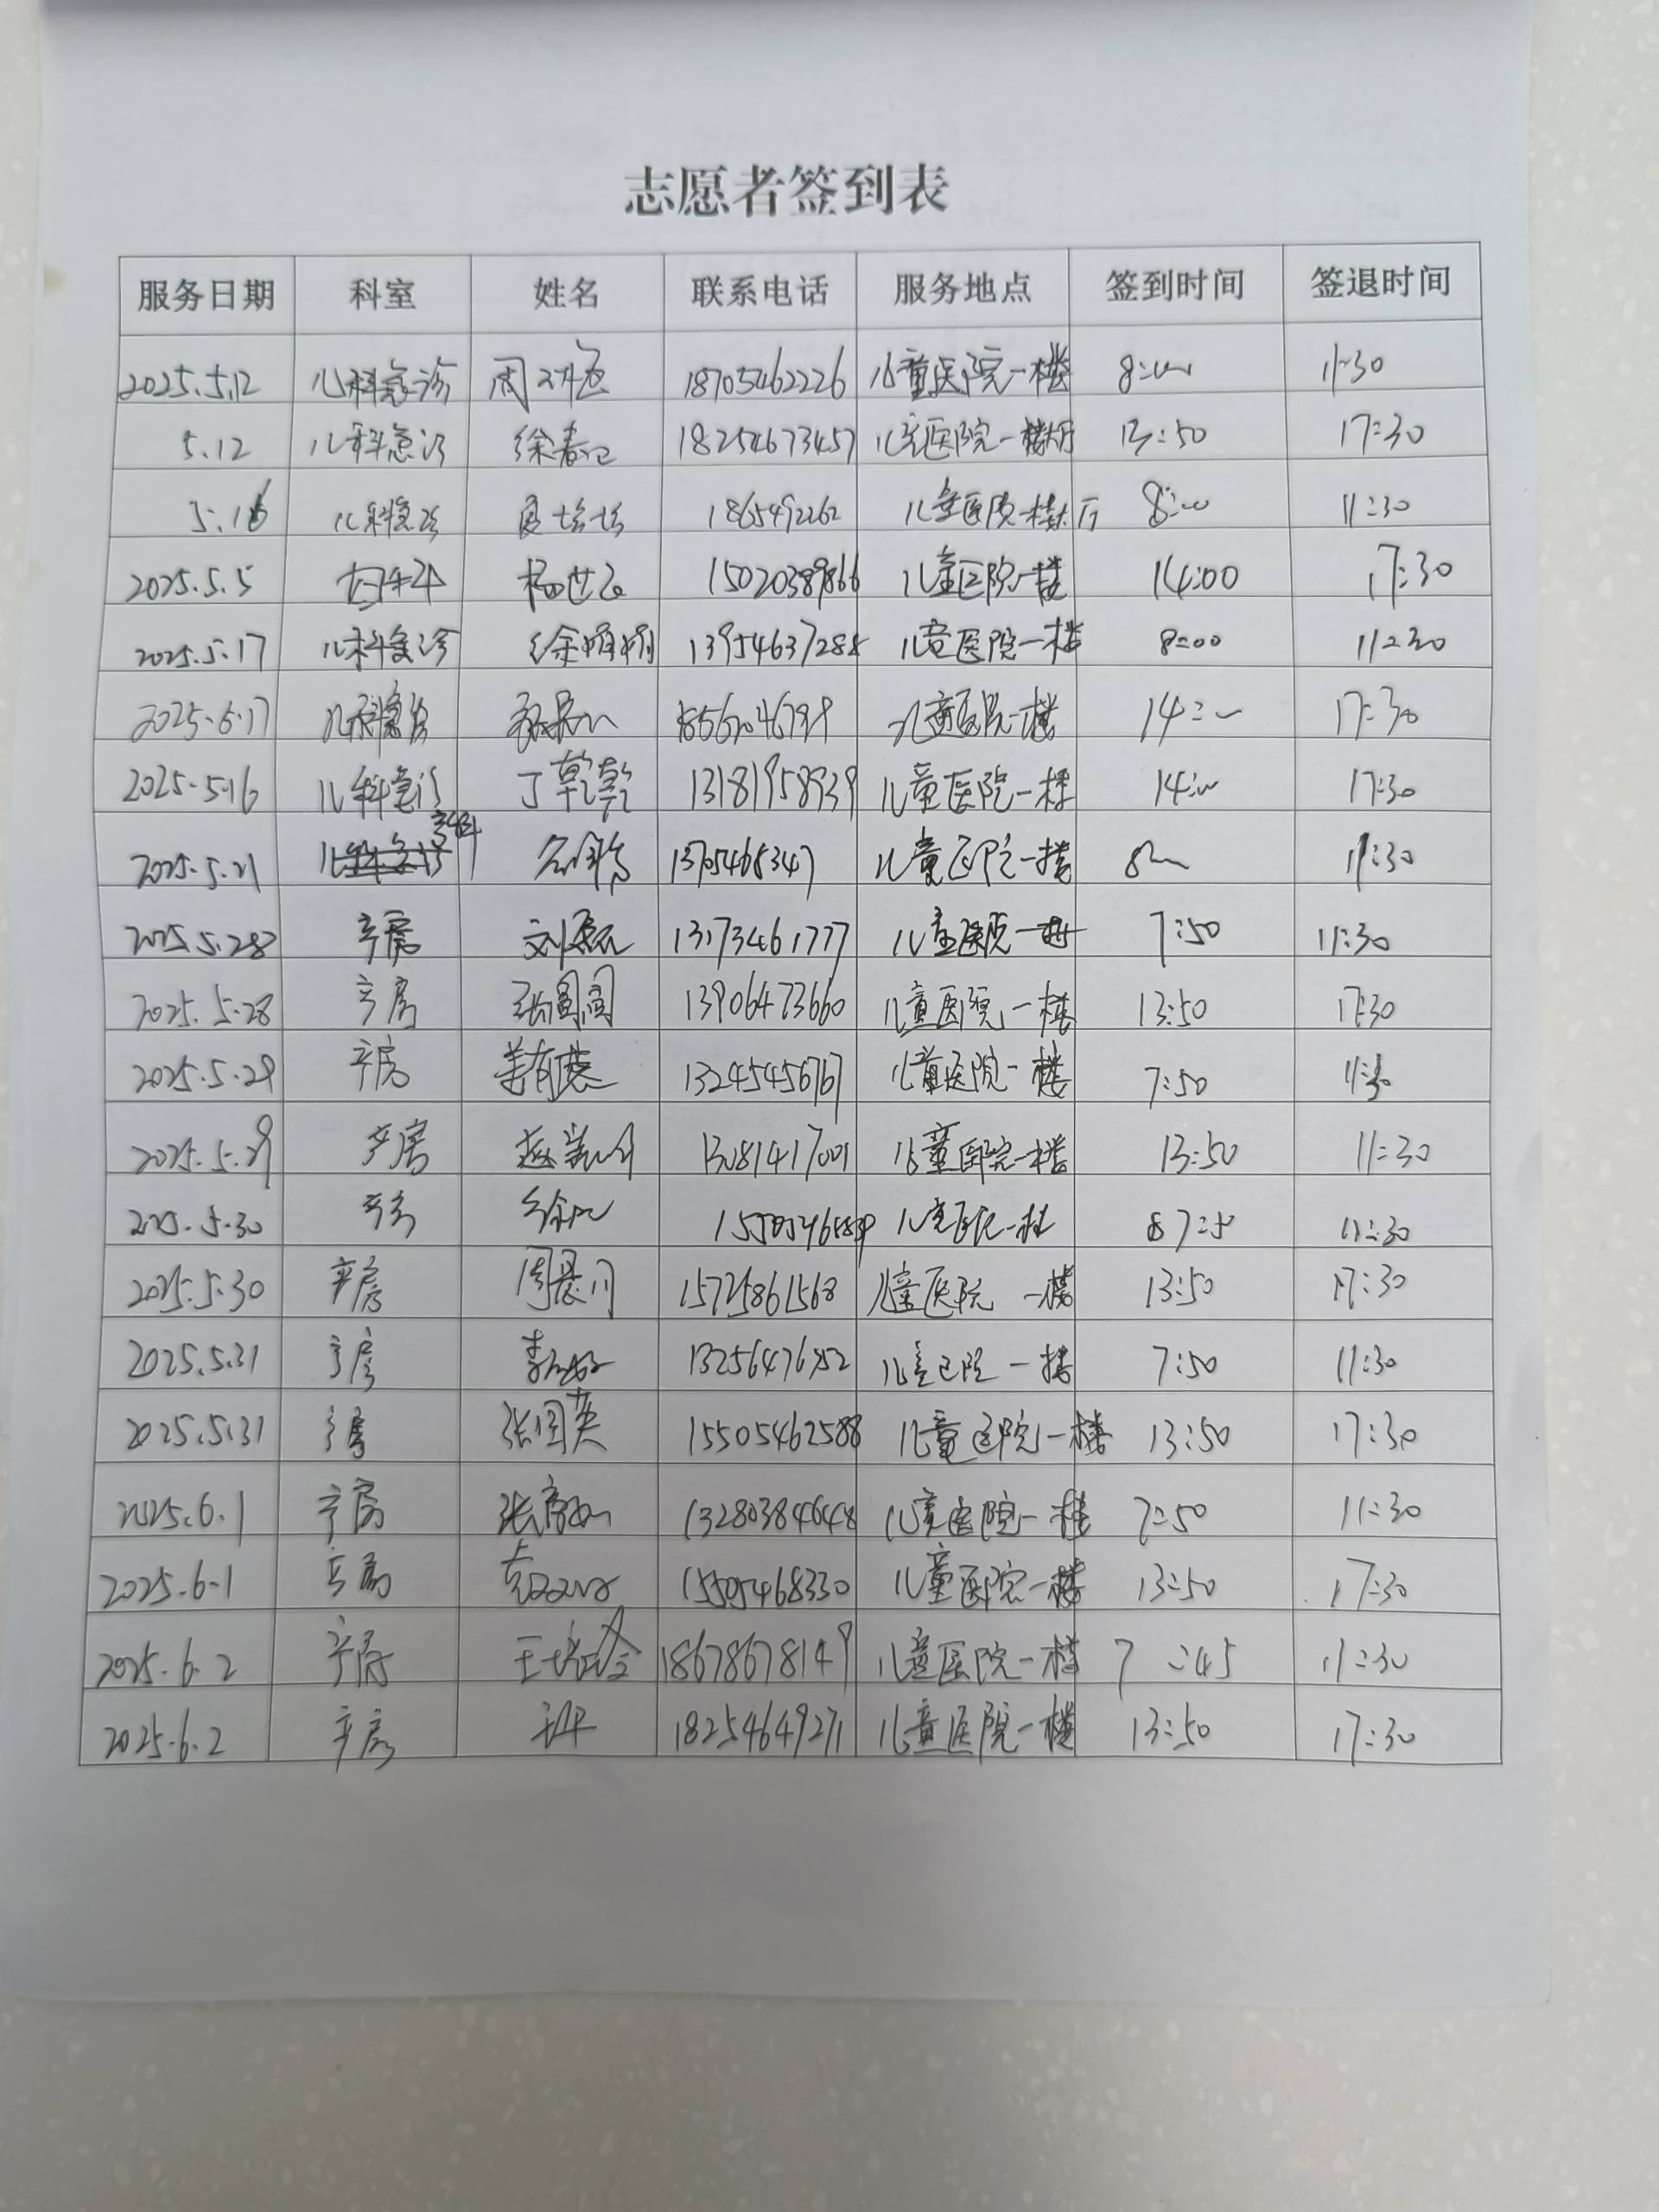 志愿者签到表
服务日期 科室 姓名 联系电话 服务地点 签到时间 签退时间
2025.5.12 儿科急诊 周 18705462226 儿童医院一楼 8:00 11:30
5.12 儿科急诊 徐春 18254673457 儿童医院一楼大厅 13:50 17:30
5.16 儿科急诊 1865492262 儿童医院一楼大厅 8:00 11:30
2025.5.5 杨世 15020389866 儿童医院一楼 14:00 17:30
2025.5.17 儿科急诊 徐娟娟 13954637288 儿童医院一楼 8:00 11:30
儿科急诊 儿童医院一楼 14:00 17:30
2025.5.16 儿科急诊 丁乾乾 13181958939 儿童医院一楼 14:00 17:30
2025.5.21 儿童医院一楼 8:00 11:30
2025.5.28 产房 刘 13173461777 儿童医院一楼 7:50 11:30
2025.5.28 产房 张圆圆 13906473660 儿童医院一楼 13:50 17:30
2025.5.29 产房 13245456767 儿童医院一楼 7:50 11:30
2025.5.29 产房 赵 13081417001 儿童医院一楼 13:50 11:30
2025.5.30 产房 徐 儿童医院一楼 11:30
2025.5.30 产房 周晨 15725861568 儿童医院一楼 13:50 17:30
2025.5.31 产房 李 儿童医院一楼 7:50 11:30
2025.5.31 产房 张国英 15505462588 儿童医院一楼 13:50 17:30
2025.6.1 产房 张 13280384648 儿童医院一楼 7:50 11:30
2025.6.1 产房 15505468330 儿童医院一楼 13:50 17:30
2025.6.2 产房 王 18678678149 儿童医院一楼 7:45 11:30
2025.6.2 产房 18254649271 儿童医院一楼 13:50 17:30